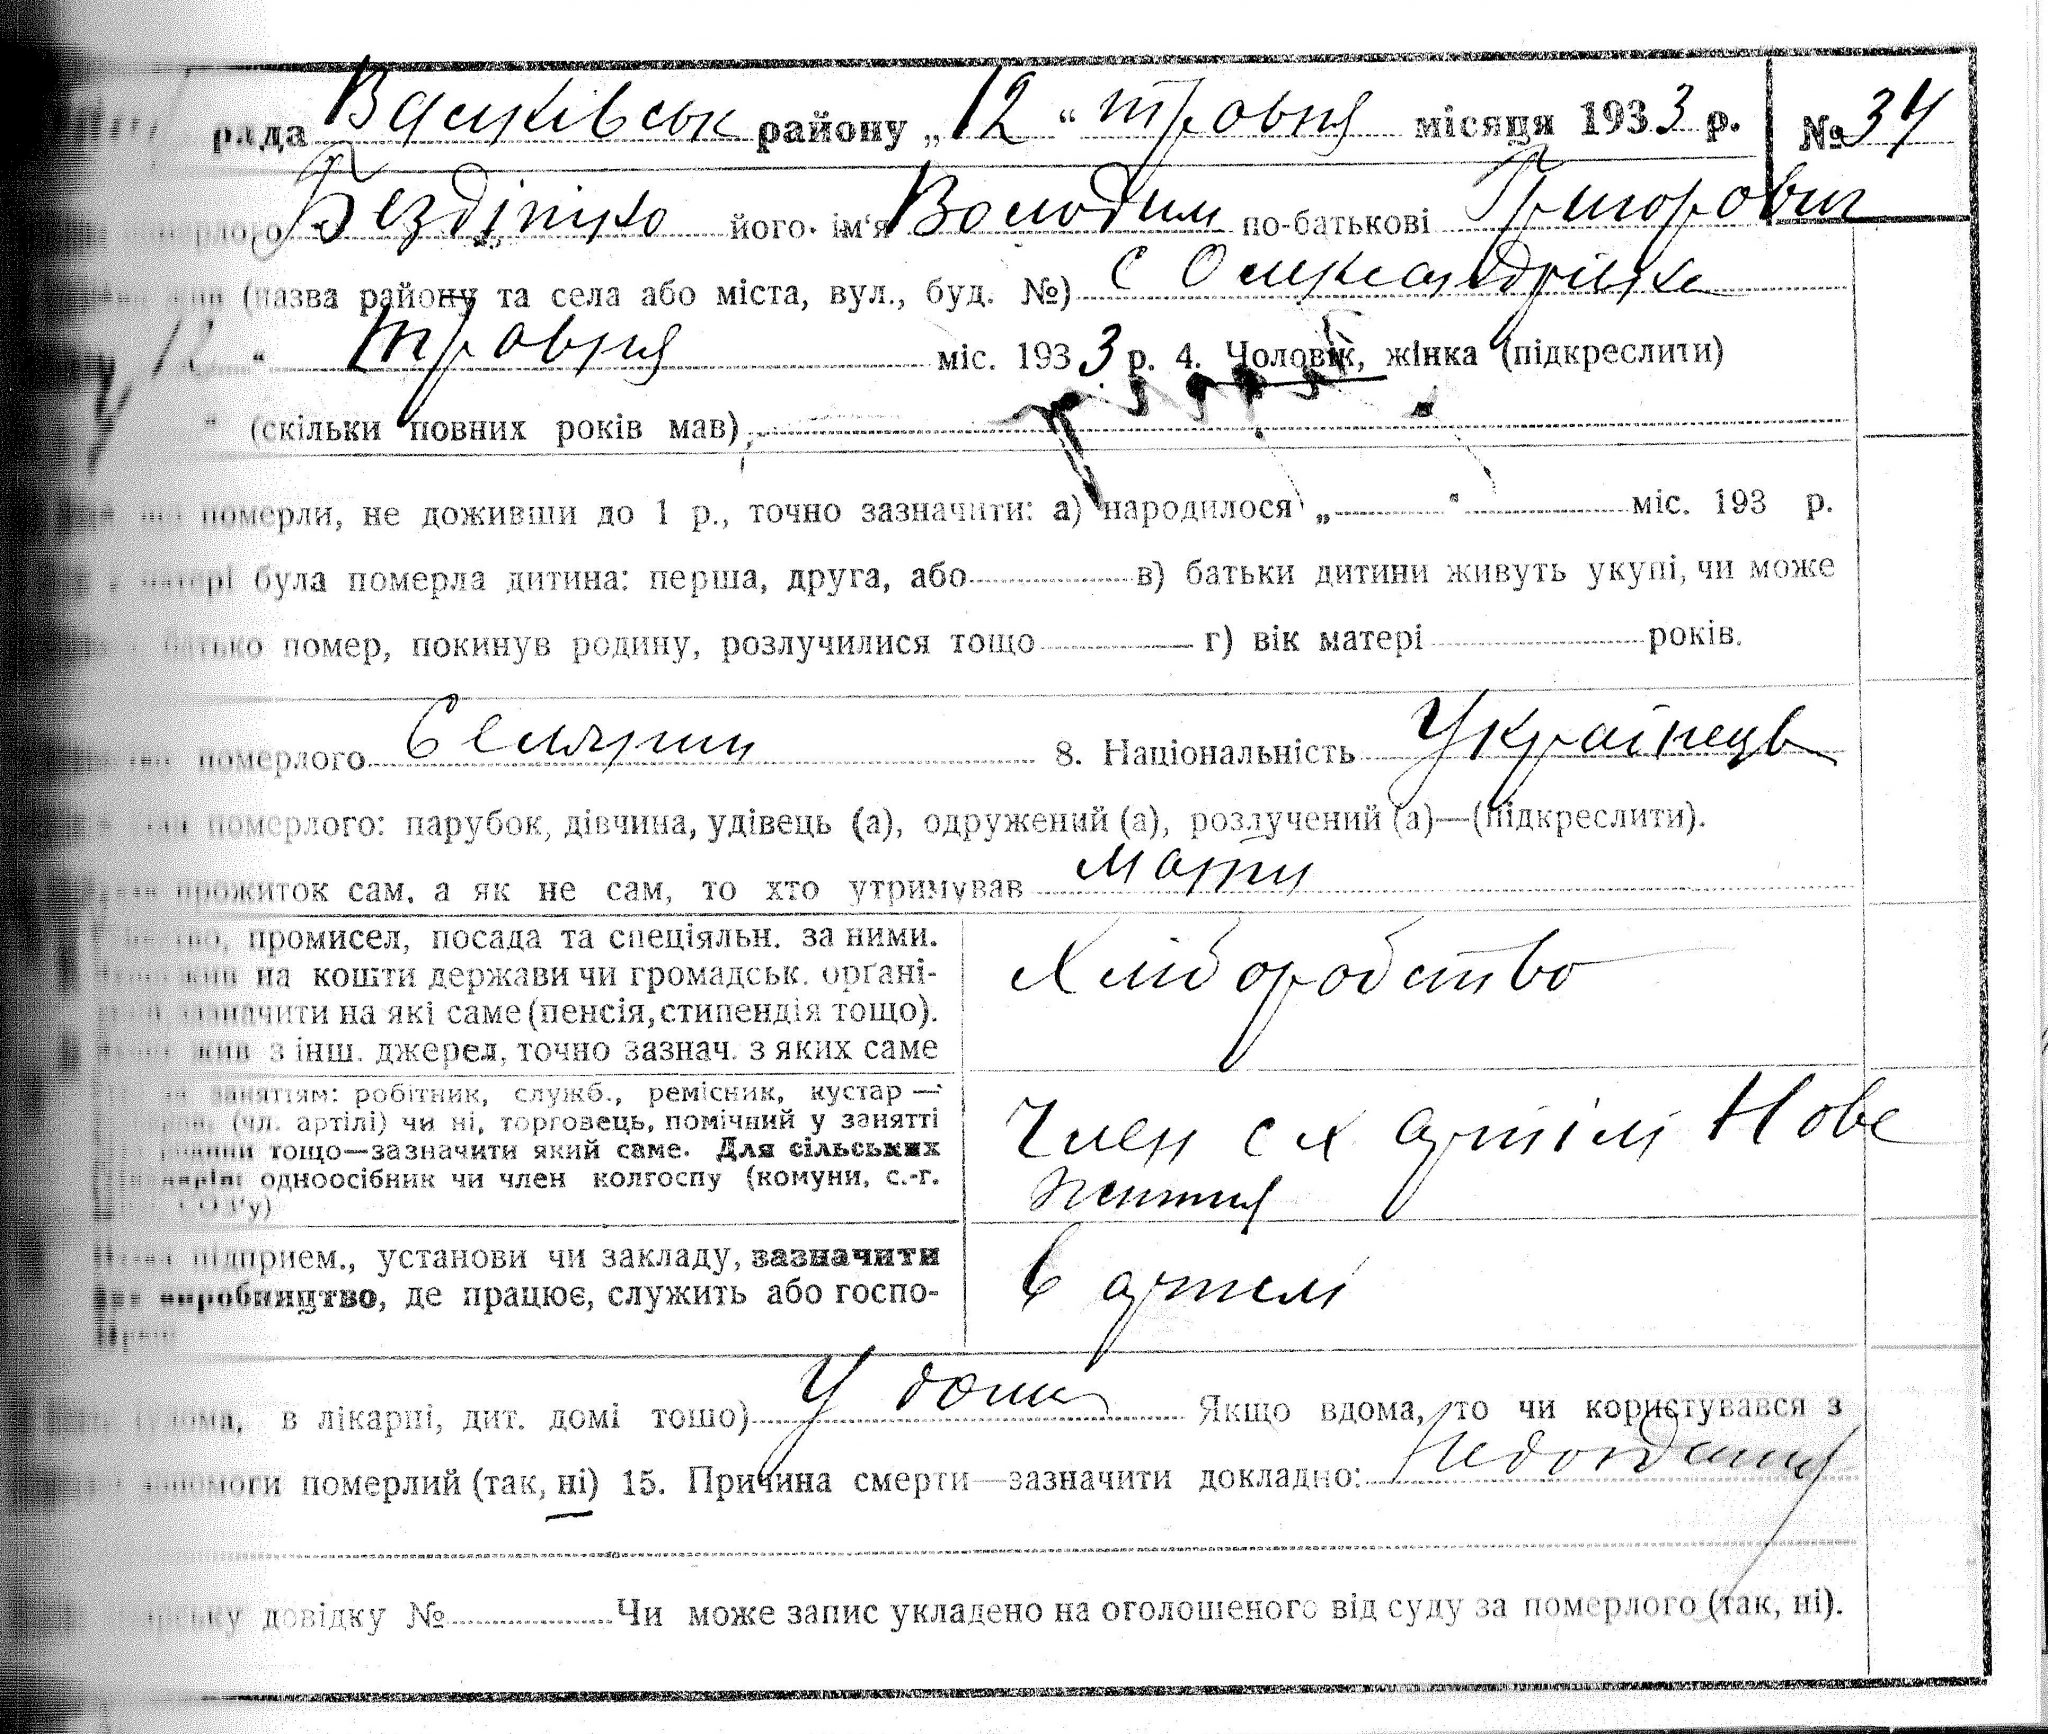 рада Валківськ району „12“ травня місяця 1933 р. № 34
Бездітко його ім'я Володим по-батькові Григорович
(назва району та села або міста, вул., буд. №) с Олександрівка
12 “ травня міс. 1933 р. 4. Чоловік, жінка (підкреслити)
“ (скільки повних років мав)
померли, не доживши до 1 р., точно зазначити: а) народилося „ “ міс. 193 р.
матері була померла дитина: перша, друга, або в) батьки дитини живуть укупі, чи може
батько помер, покинув родину, розлучилися тощо г) вік матері років.
померлого Селянин 8. Національність Українець
померлого: парубок, дівчина, удівець (а), одружений (а), розлучений (а)—(підкреслити).
прожиток сам, а як не сам, то хто утримував мати
промисел, посада та спеціяльн. за ними. Хліборобство
жив на кошти держави чи громадськ. органі-
зазначити на які саме (пенсія, стипендія тощо).
жив з інш. джерел, точно зазнач. з яких саме
за заняттям: робітник, служб., ремісник, кустар —
(чл. артілі) чи ні, торговець, помічний у занятті Член с х артілі Нове
родини тощо—зазначити який саме. Для сільських
одноосібник чи член колгоспу (комуни, с.-г. Життя
СОЗ'у)
підприєм., установи чи закладу, зазначити
виробництво, де працює, служить або госпо- В артелі
(удома, в лікарні, дит. домі тощо) У дома Якщо вдома, то чи користувався з
допомоги померлий (так, ні) 15. Причина смерти—зазначити докладно:
довідку № Чи може запис укладено на оголошеного від суду за померлого (так, ні).